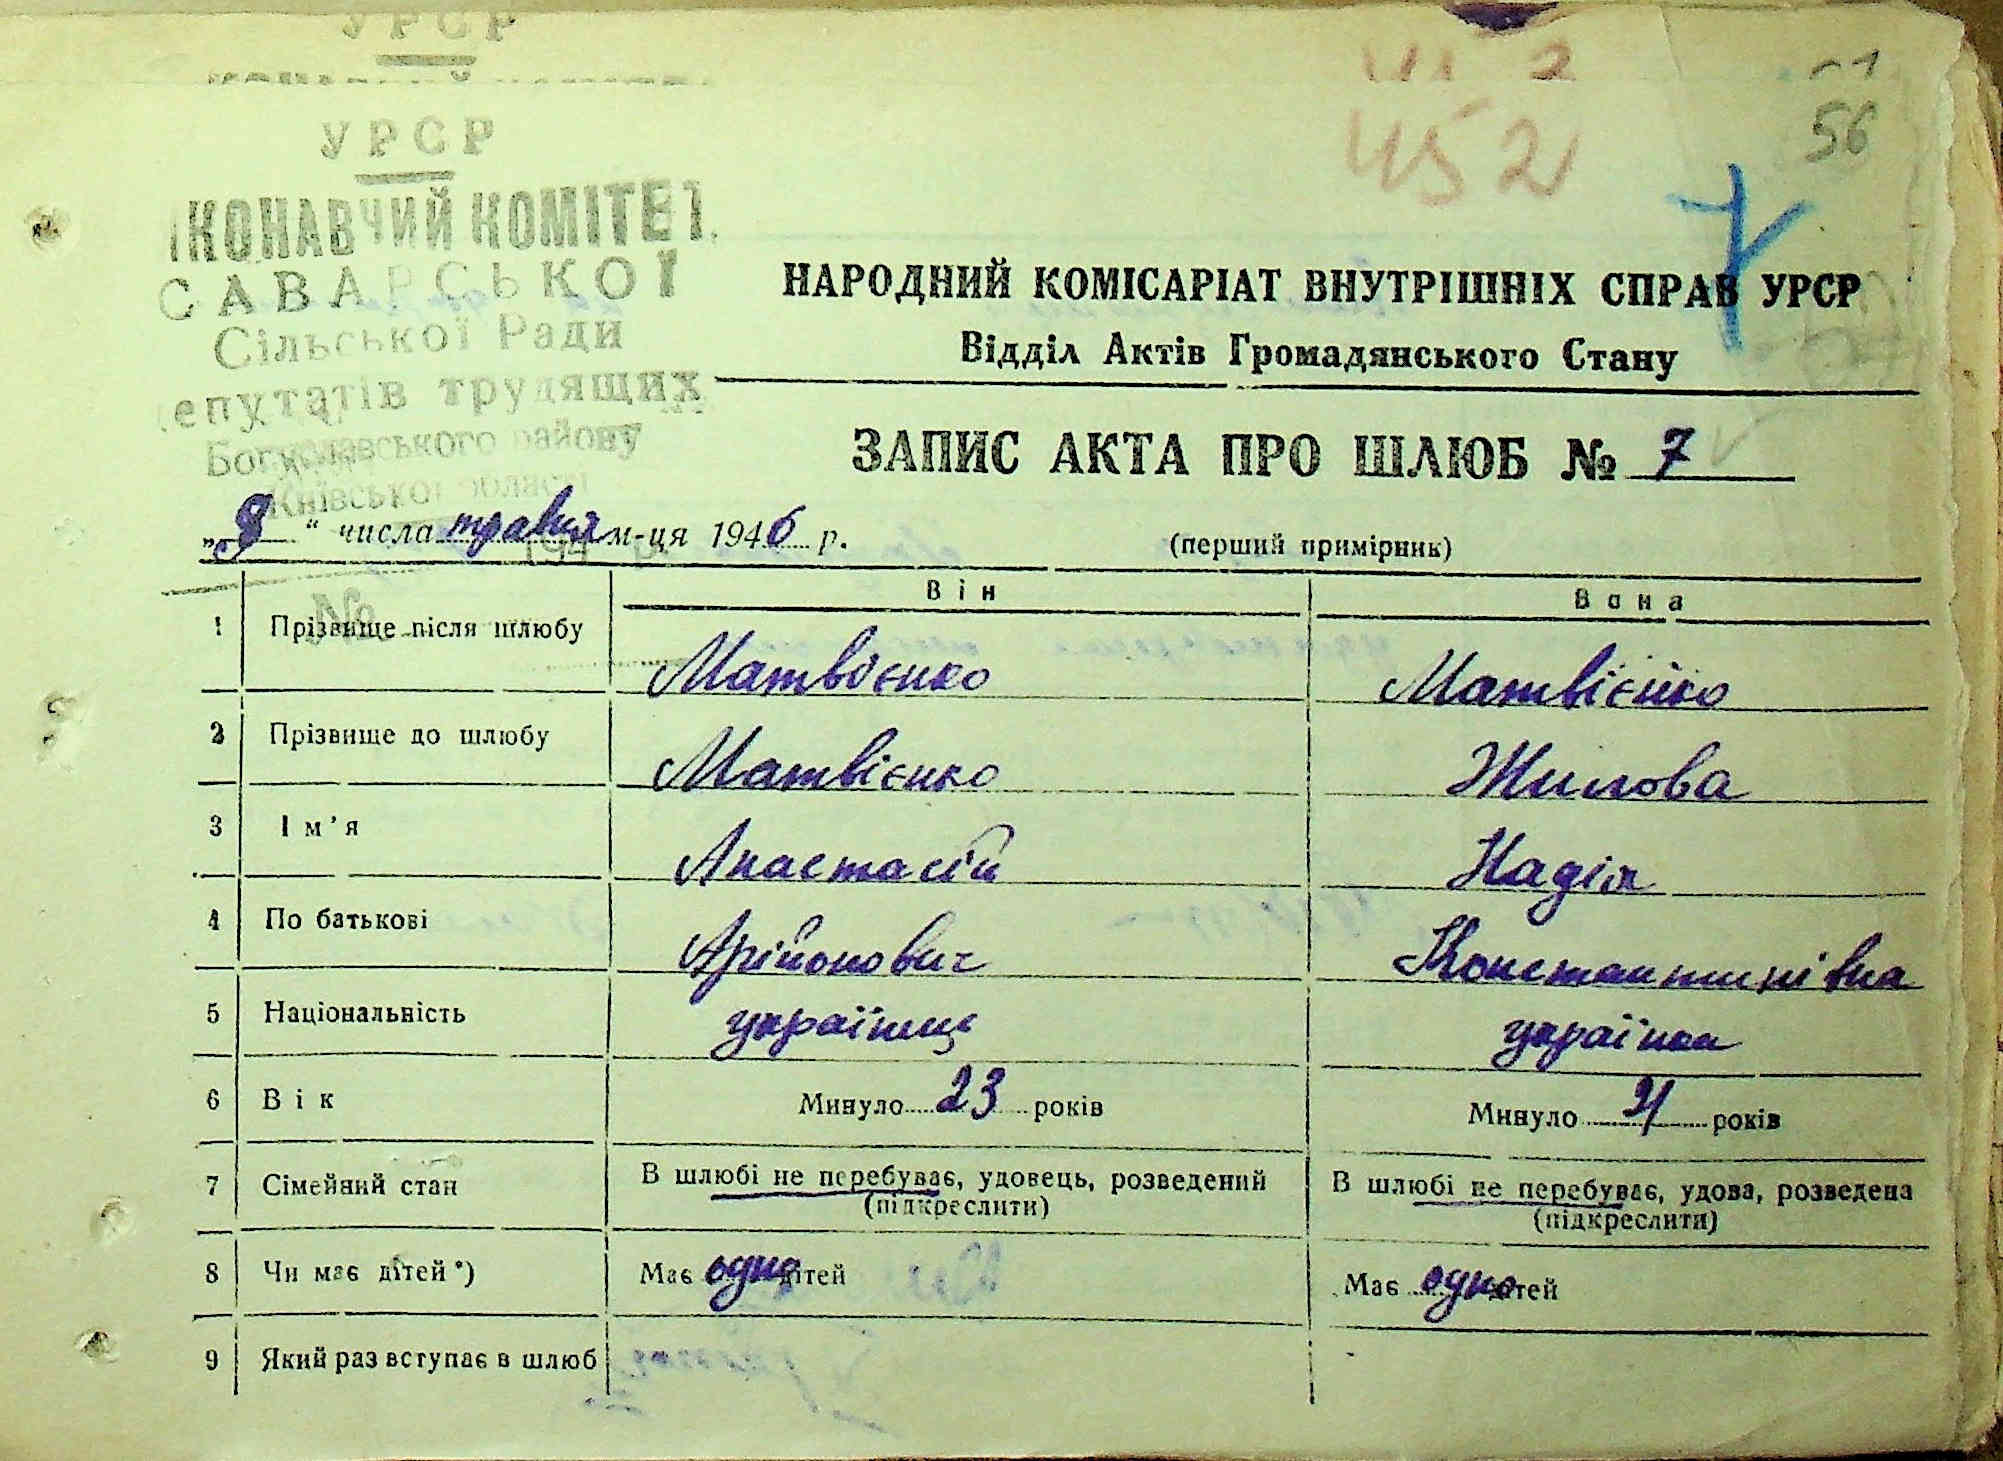 УРСР
452
56
УРСР
ИКОНАВЧИЙ КОМІТЕТ
САВАРСЬКОЇ
Сільської Ради
депутатів трудящих
Богуславського району
Київської області
№
НАРОДНИЙ КОМІСАРІАТ ВНУТРІШНІХ СПРАВ УРСР
Відділ Актів Громадянського Стану
ЗАПИС АКТА ПРО ШЛЮБ № 7
„8“ числа травня м-ця 1946 р.
(перший примірник)
Він Вона
1 Прізвище після шлюбу Матвієнко Матвієнко
2 Прізвище до шлюбу Матвієнко Жилова
3 Ім'я Анастасій Надія
4 По батькові Арійонович Константинівна
5 Національність українець українка
6 Вік Минуло 23 років Минуло 21 років
7 Сімейний стан В шлюбі не перебуває, удовець, розведений В шлюбі не перебуває, удова, розведена
(підкреслити) (підкреслити)
8 Чи має дітей*) Має одно дітей Має одно дітей
9 Який раз вступає в шлюб